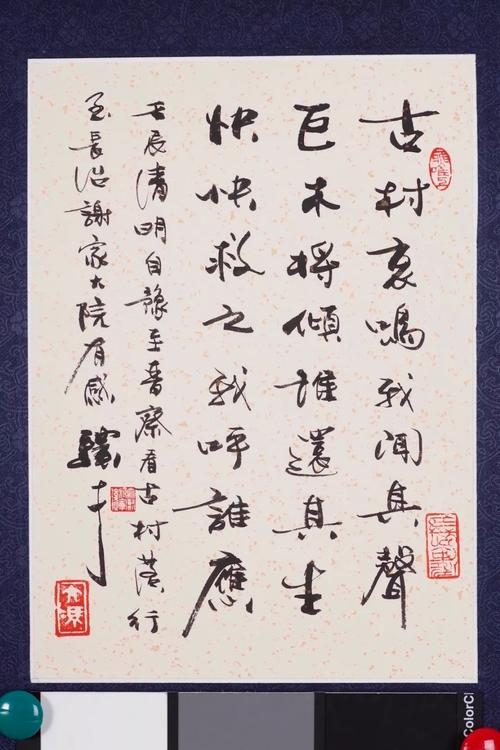 古村哀鳴我聞其聲
巨木將傾誰還其生
快快救之我呼誰應
壬辰清明自豫至晉察看古村落行
至長治謝家大院有感 驥才
ColorC